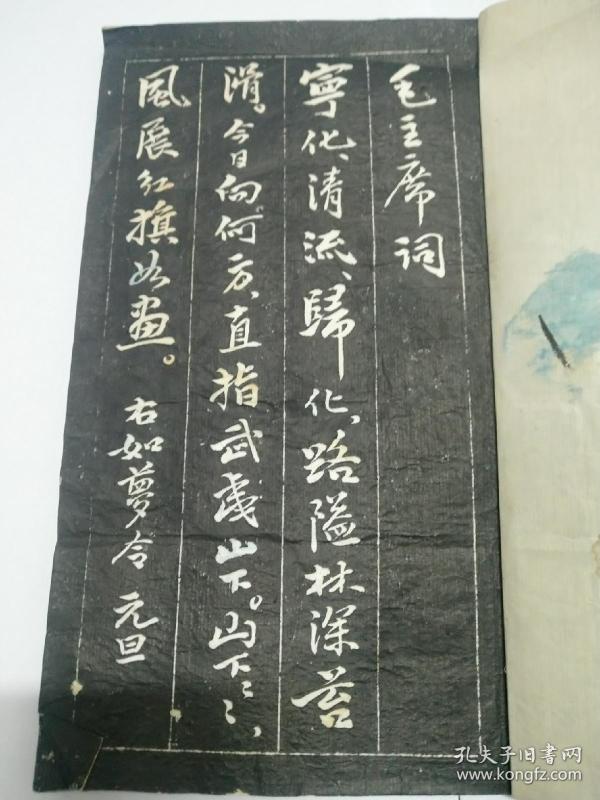 毛主席词
寧化、清流、歸化、路隘林深苔
滑。今日向何方、直指武夷山下。山下〻〻、
風展红旗如畫。 右如夢令 元旦
孔夫子旧书网
www.kongfz.com